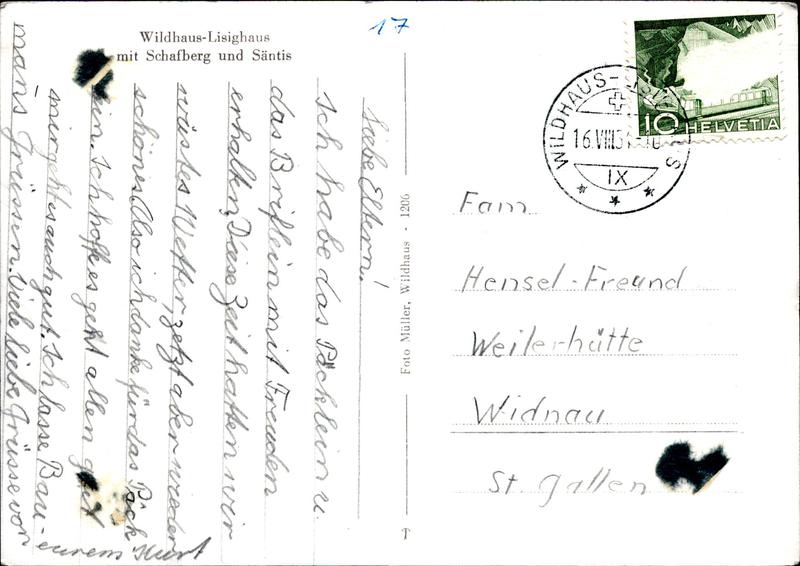 17
Wildhaus-Lisighaus
mit Schafberg und Säntis
Liebe Eltern!
Ich habe das Päcklein u.
das Brieflein mit Freuden
erhalten. Diese Zeit hatten wir
wüstes Wetter, jetzt aber wieder
schönes. Also ich danke für das Päck-
lein. Ich hoffe es geht allen gut
mir geht es auch gut. Ich lasse Bau-
manns Grüssen. Viele liebe Grüsse von
eurem Kurt
Foto Müller, Wildhaus - 1206
WILDHAUS-LISIGHAUS
16.VIII.51.-10
IX
10 HELVETIA
Fam.
Hensel-Freund
Weilerhütte
Widnau
St. Gallen